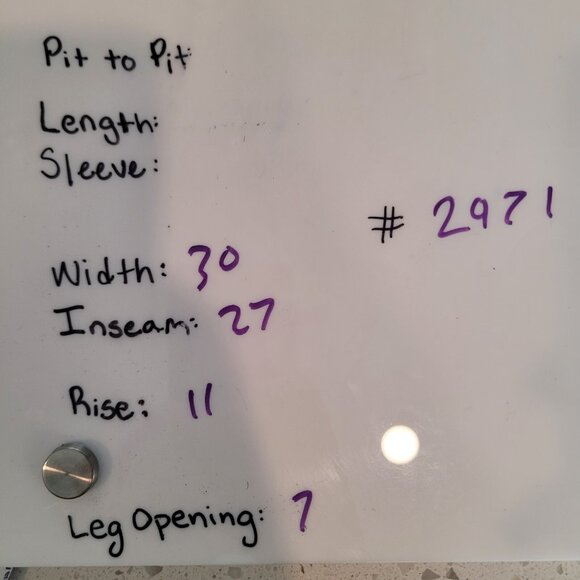 Pit to Pit
Length:
Sleeve:
# 2971
Width: 30
Inseam: 27
Rise: 11
Leg Opening: 7